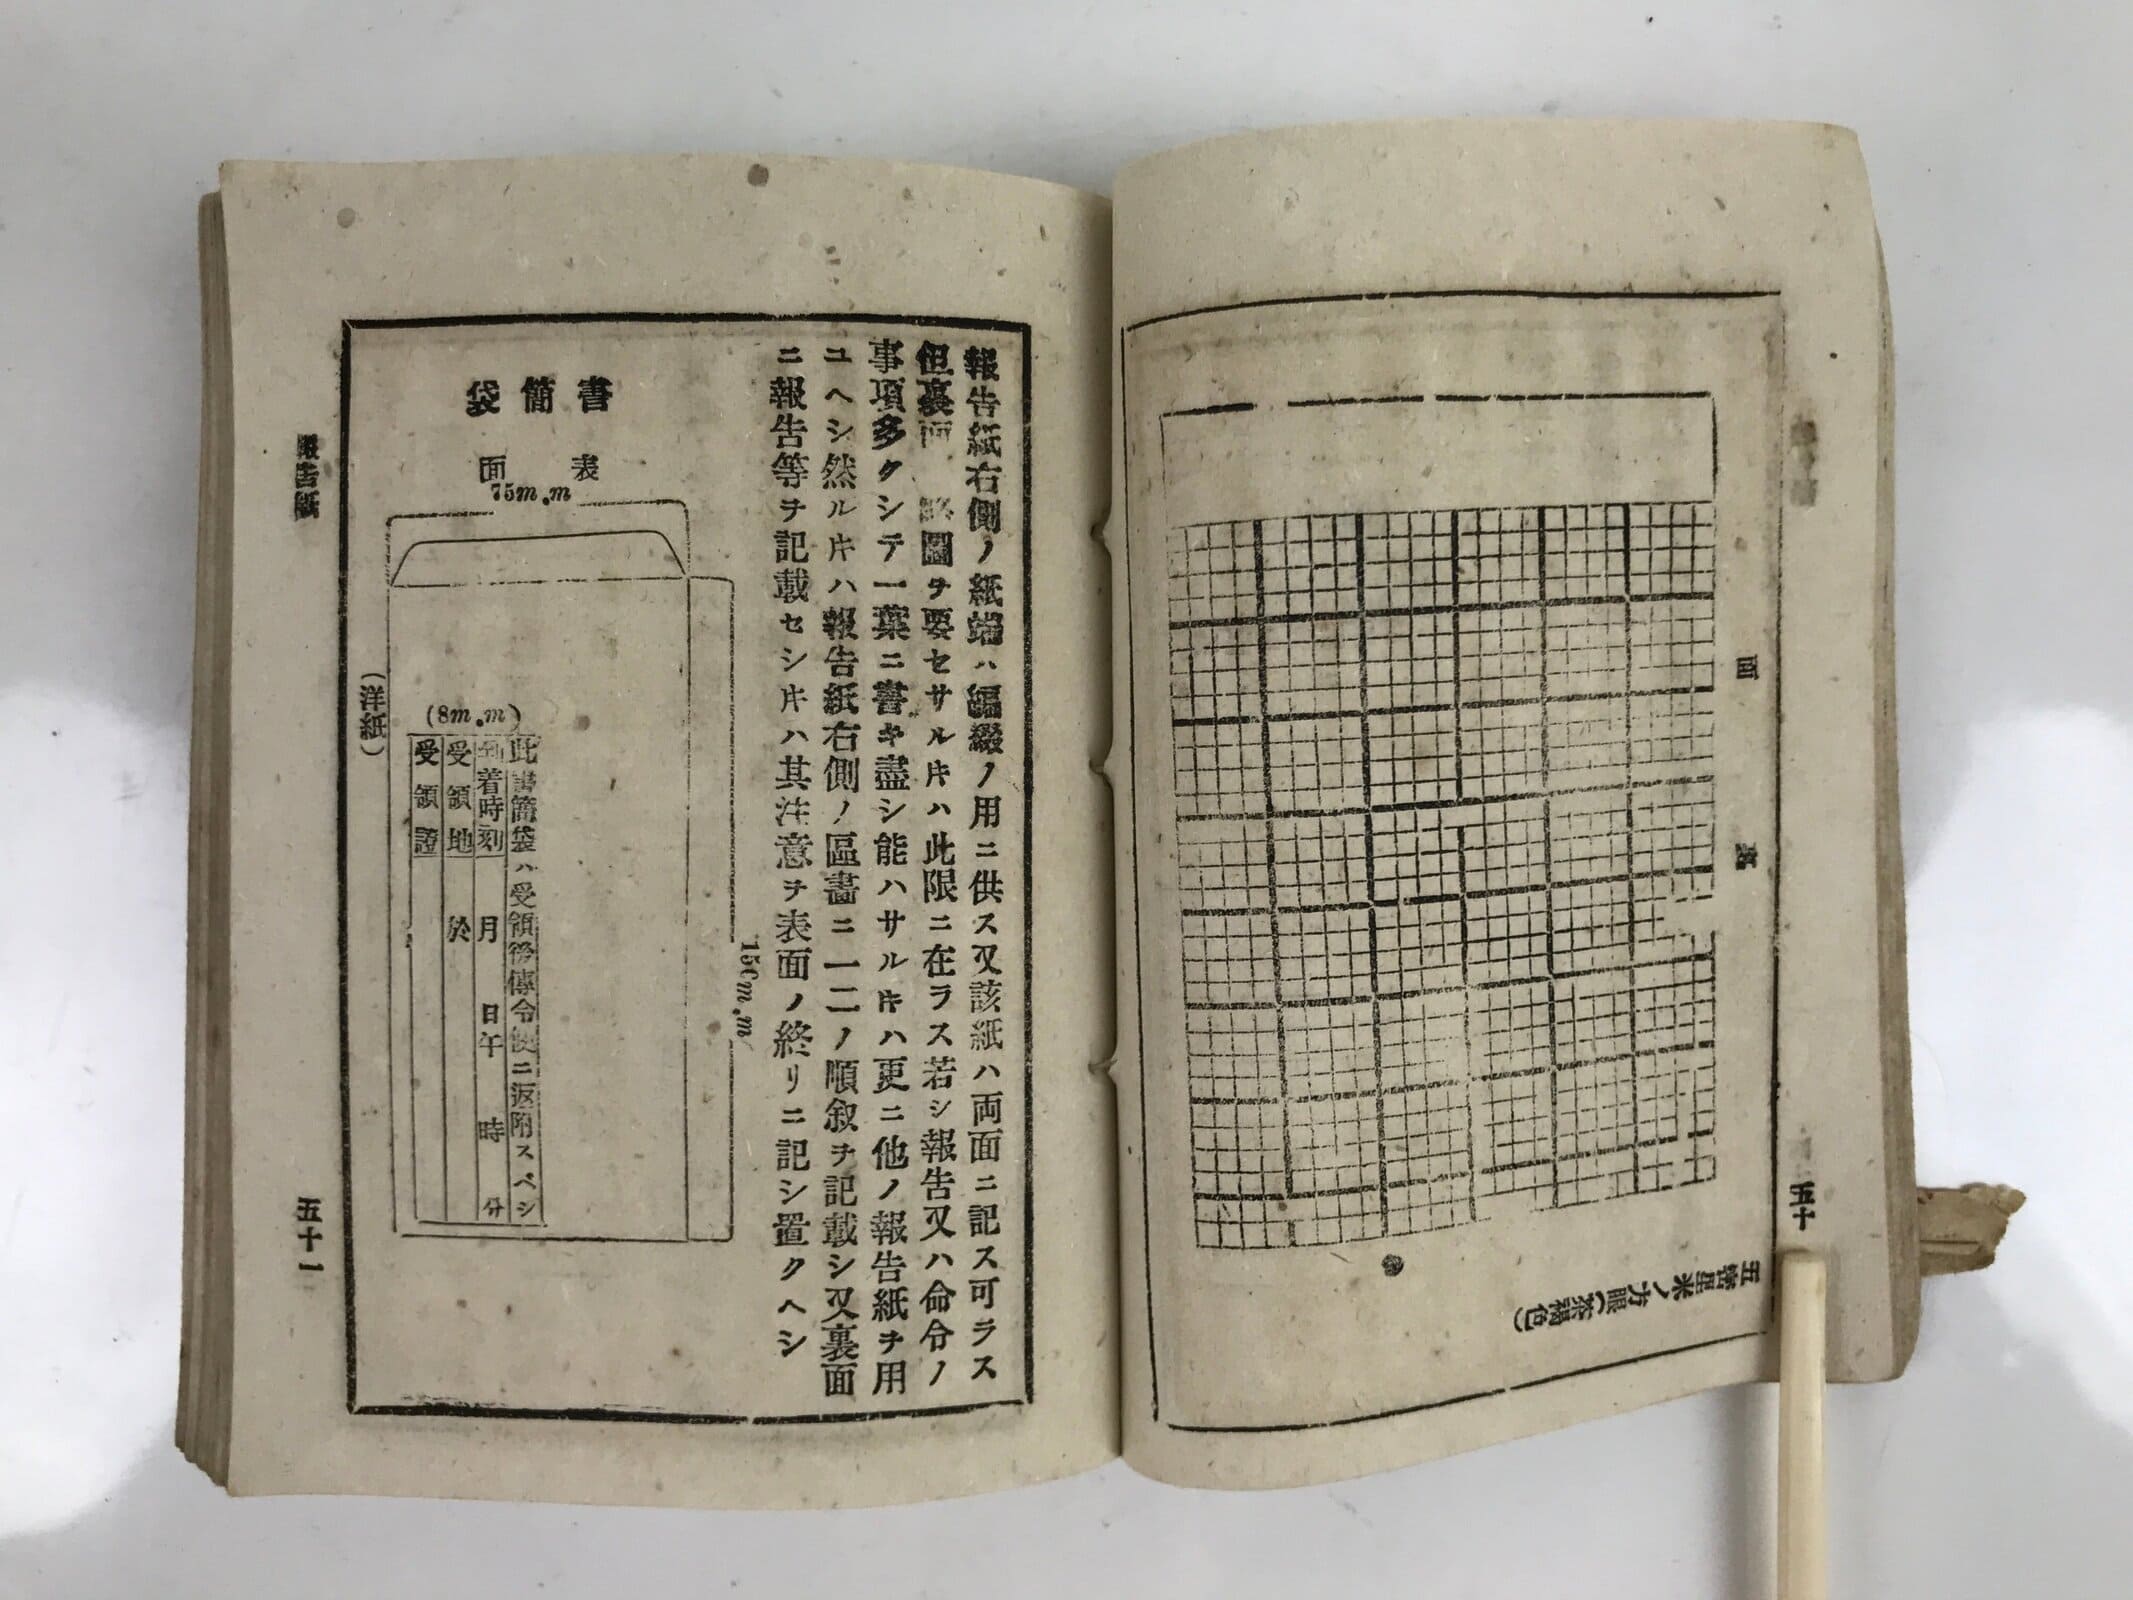 裏面
五密里米ノ方眼(茶褐色)
五十
報告紙右側ノ紙端ハ編綴ノ用ニ供ス又該紙ハ両面ニ記ス可ラス
但裏面 略圖ヲ要セサルトキハ此限ニ在ラス若シ報告又ハ命令ノ
事項多クシテ一葉ニ書キ盡シ能ハサルトキハ更ニ他ノ報告紙ヲ用
ユヘシ然ルトキハ報告紙右側ノ區畵ニ一二ノ順叙ヲ記載シ又裏面
ニ報告等ヲ記載セシトキハ其注意ヲ表面ノ終リニ記シ置クヘシ
書簡袋
表面
75m.m
150m.m
(8m.m)
此書簡袋ハ受領後傳令使ニ返附スベシ
到着時刻 月 日午 時 分
受領地 於
受領證
(洋紙)
報告紙
五十一